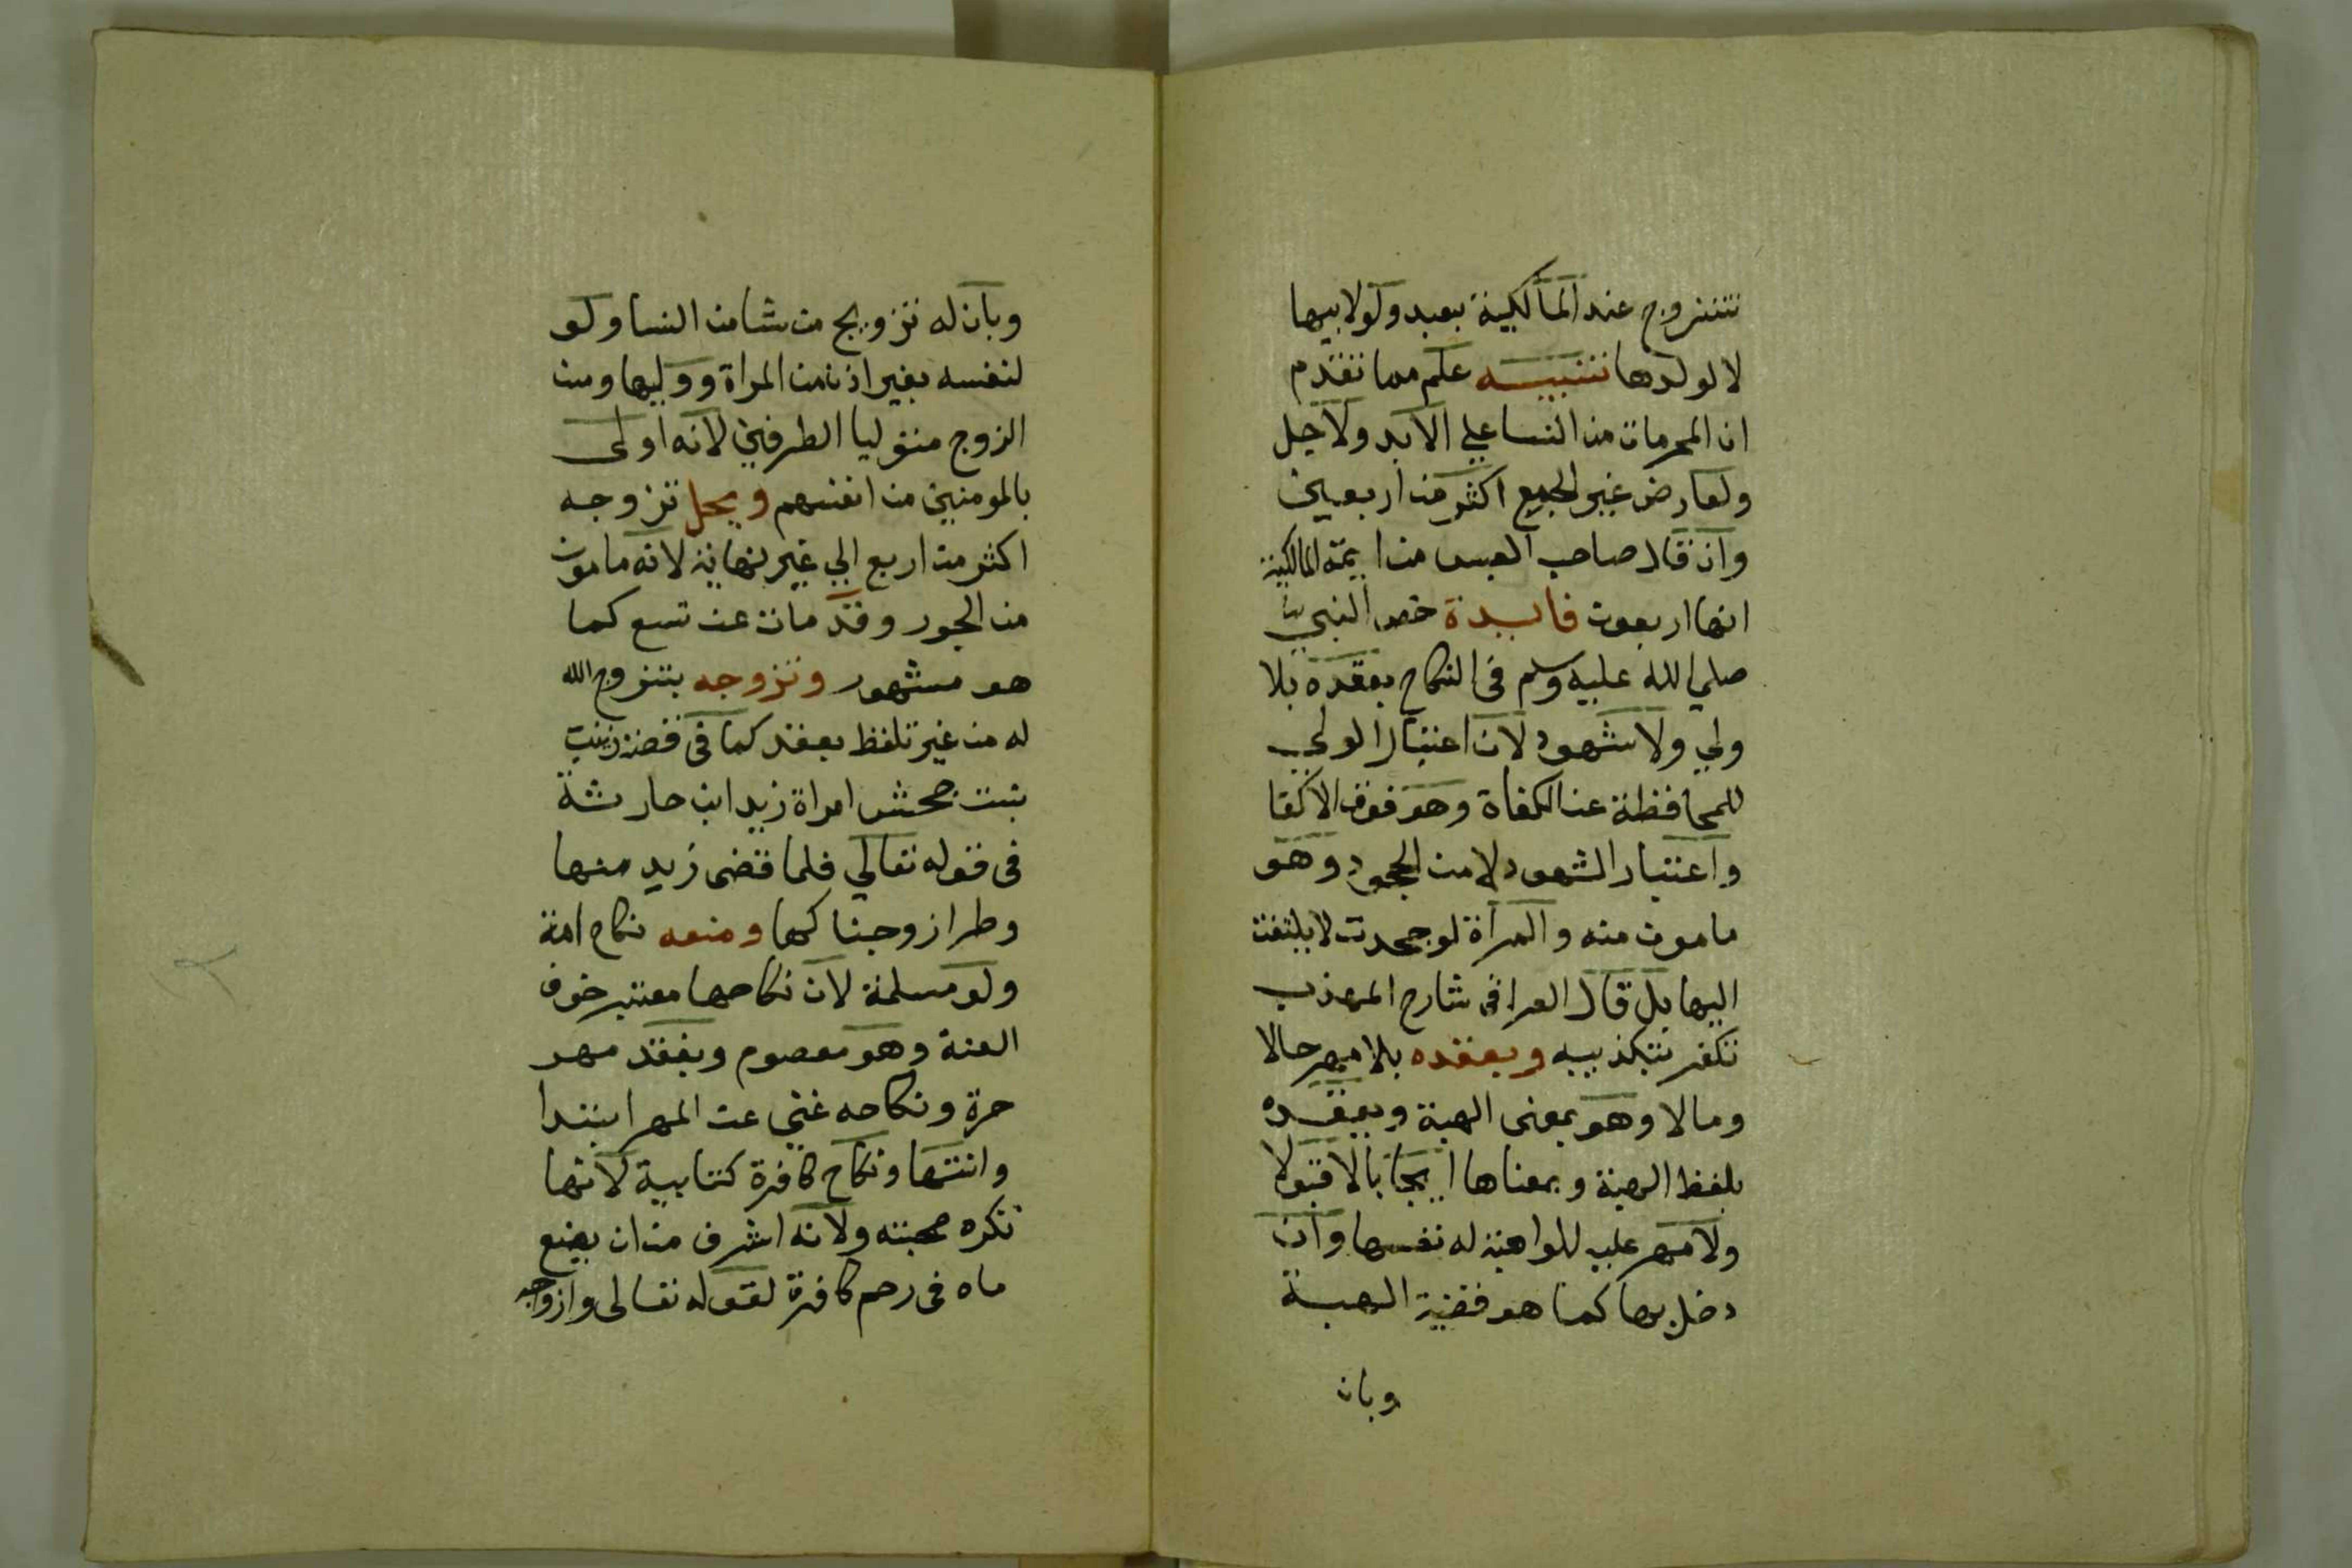 تتزوج عند المالكية بعبد ولو لابيها
لا لولدها تنبيه علم مما تقدم
ان المحرمات من النسا علي الابد ولاجل
ولعارض غير الجمع اكثر من اربعين
وان قال صاحب العبس من ايمة المالكية
انها اربعون فايدة خص النبي
صلي الله عليه وسلم في النكاح بعقده بلا
ولي ولا شهود لان اعتبار الولي
للمحافظة عن الكفاة وهو فوق الاكفا
واعتبار الشهود لا من الجحود وهو
مامون منه والمراة لو جحدت لا يلتفت
اليها بل قال العراقى شارح المهذب
تكفر بتكذيبه وبعقده بلا مهر حالا
ومالا وهو بمعنى الهبة وبعقده
بلفظ الهبة وبمعناها ايجابا لا قبولا
ولا مهر عليه للواهبة له نفسها وان
دخل بها كما هو قضية الهبة
وبان
وبان له تزويج من شا من النسا ولو
لنفسه بغير اذن من المراة ووليها ومن
الزوج متوليا الطرفين لانه اولى
بالمومنين من انفسهم ويحل تزوجه
اكثر من اربع الي غير نهاية لانه مامون
من الجور وقد مات عن تسع كما
هو مشهور وتزوجه بتزوج الله
له من غير تلفظ بعقد كما في قصة زينب
بنت جحش امراة زيد ابن حارثة
في قوله تعالي فلما قضى زيد منها
وطرا زوجناكها ومنعه نكاح امة
ولو مسلمة لان نكاحها معتبر خوف
العنة وهو معصوم وبفقد مهر
حرة ونكاحه غني عن المهر ابتدا
وانتها ونكاح كافرة كتابية لانها
تكره صحبته ولانه اشرف من ان يضع
ماه في رحم كافرة لقوله تعالى وازواجه